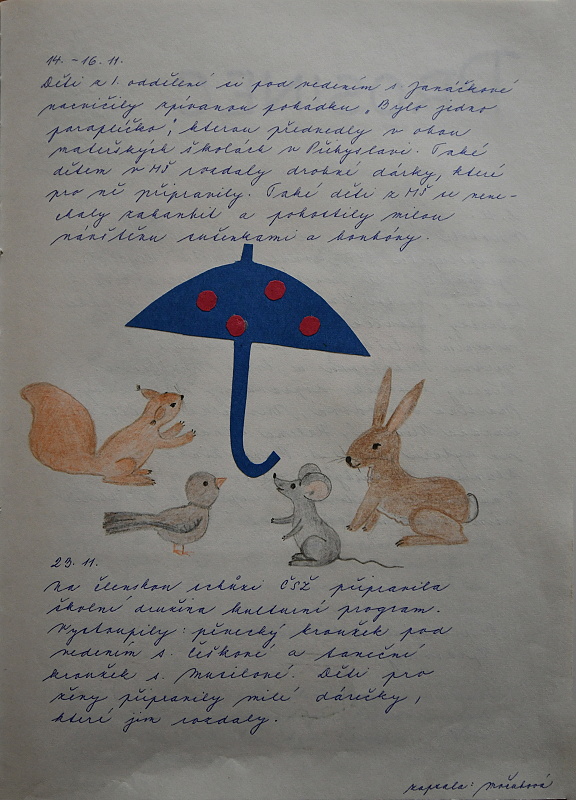 14. - 16. 11.
Děti z 1. oddělení si pod vedením s. Janáčkové
nacvičily zpívanou pohádku "Bylo jedno
paraplíčko", kterou předvedly v obou
mateřských školách v Přibyslavi. Také
dětem v MŠ rozdaly drobné dárky, které
pro ně připravily. Také děti z MŠ se nene-
chaly zahanbit a pohostily milou
návštěvu sušenkami a bonbóny.
23. 11.
Na členskou schůzi ČSŽ připravila
školní družina kulturní program.
Vystoupily: pěvecký kroužek pod
vedením s. Číškové a taneční
kroužek s. Musilové. Děti pro
ženy připravily milé dárečky,
které jim rozdaly.
zapsala: